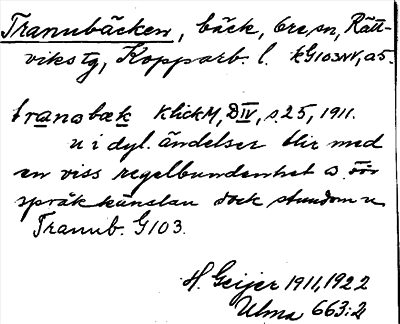 Tranubäcken, bäck, Ore sn, Rätt-
viks tg, Kopparb. l. KG103NV, a5.
tranabæk Klick M, DIV, s. 25, 1911.
u i dyl. ändelser blir med
en viss regelbundenhet a. För
språkkänslan dock stundom u
Tranub. G103.
H. Geijer 1911, 1922
Ulma 663:2